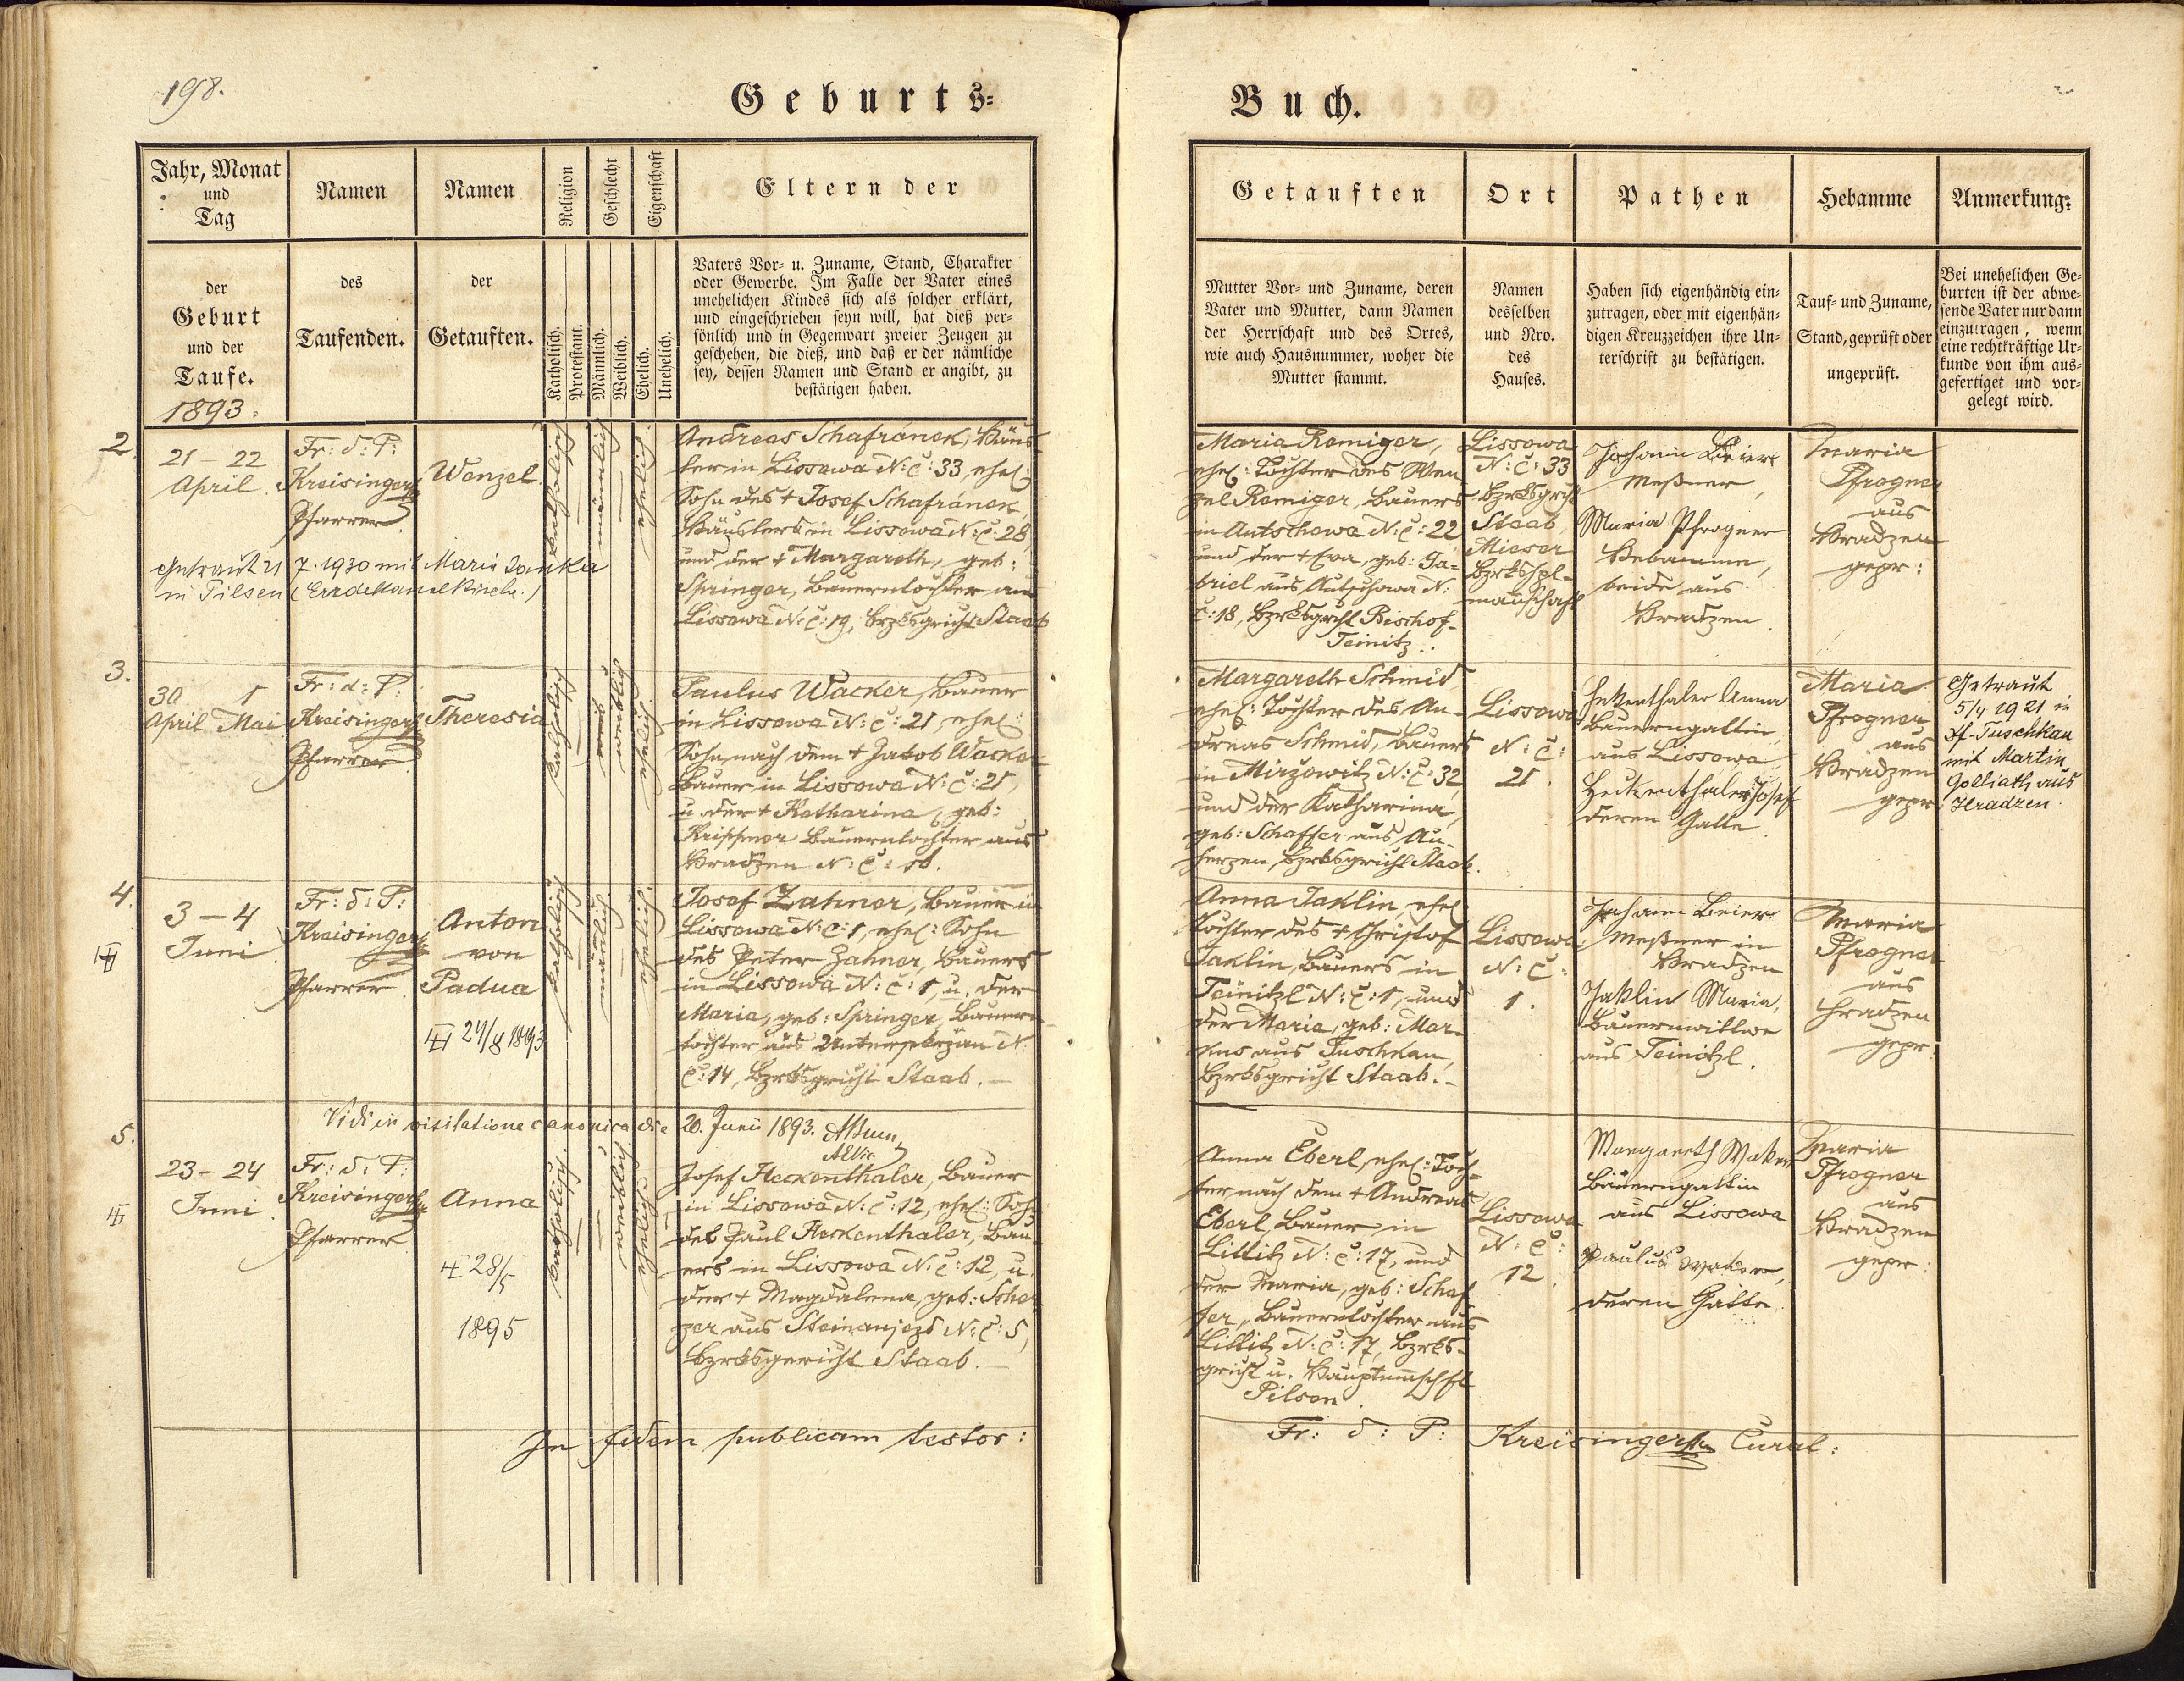 198.
Geburts-
Jahr, Monat
und
Tag
Namen
Namen
Religion
Geschlecht
Eigenschaft
Eltern der
der
Geburt
und der
Taufe.
1893.
des
Taufenden.
der
Getauften.
Katholisch.
Protestant.
Männlich.
Weiblich.
Ehelich.
Unehelich.
Vaters Vor- u. Zuname, Stand, Charakter
oder Gewerbe. Im Falle der Vater eines
unehelichen Kindes sich als solcher erklärt,
und eingeschrieben seyn will, hat dieß per-
sönlich und in Gegenwart zweier Zeugen zu
geschehen, die dieß, und daß er der nämliche
sey, dessen Namen und Stand er angibt, zu
bestätigen haben.
2.
21 – 22
April
Fr: d: P:
Kreisinger
Pfarrer
Wenzel.
katholisch
männlich
ehelich
Andreas Schafránek, Häus
ler in Lissowa N: č: 33, ehel:
Sohn des + Josef Schafránek,
Häuslers in Lissowa N: č: 28,
und der + Margareth, geb:
Springer, Bauerntochter aus
Lissowa N: č: 19, Bzrksgricht Staab
Getraut 21 7. 1930 mit Marie Janka
in Pilsen (Erzdekanalkirche.)
3.
30 1
April Mai
Fr: d: P:
Kreisinger
Pfarrer
Theresia
katholisch
weiblich
ehelich
Paulus Wacker, Bauer
in Lissowa N: č: 21, ehel:
Sohn nach dem + Jakob Wacker
Bauer in Lissowa N: č: 21,
u. der + Katharina, geb:
Bauerntochter aus
Hradzen N: č: 16.
4.
3 – 4
Juni
Fr: d: P:
Kreisinger
Pfarrer
Anton
von
Padua
24/8 1893
katholisch
männlich
ehelich
Josef Zahner, Bauer in
Lissowa N: č: 1, ehel: Sohn
des Peter Zahner, Bauers
in Lissowa N: č: 1, u. der
Maria, geb: Springer, Bauern
tochter aus Untersekrzan N:
č: 14, Bzrksgricht Staab. –
Vidi in visitatione canonica die 20. Junii 1893.
5.
23 – 24
Juni
Fr: d: P:
Kreisinger
Pfarrer
Anna
28/5
1895
katholisch
weiblich
ehelich
Josef Heckenthaler, Bauer
in Lissowa N: č: 12, ehel: Sohn
des Paul Heckenthaler, Bau
ers in Lissowa N: č: 12, u.
der + Magdalena, geb: Scher
zer aus Steinaujezd N: č: 5,
Bzrksgericht Staab. –
In fidem publicam testor:
Buch.
Getauften
Ort
Pathen
Hebamme
Anmerkung:
Mutter Vor- und Zuname, deren
Vater und Mutter, dann Namen
der Herrschaft und des Ortes,
wie auch Hausnummer, woher die
Mutter stammt.
Namen
desselben
und Nro.
des
Hauses.
Haben sich eigenhändig ein-
zutragen, oder mit eigenhän-
digen Kreuzzeichen ihre Un-
terschrift zu bestätigen.
Tauf- und Zuname,
Stand, geprüft oder
ungeprüft.
Bei unehelichen Ge-
burten ist der abwe-
sende Vater nur dann
einzutragen, wenn
eine rechtkräftige Ur-
kunde von ihm aus-
gefertiget und vor-
gelegt wird.
Maria Remiger,
ehel: Tochter des Wen
zel Remiger, Bauers
in Autschowa N: č: 22
und der + Eva, geb: Ga-
briel aus Autschowa N:
č: 18, Bzrksgrcht Bischof-
Teinitz.
Lissowa
N: č: 33
Bzrksgrcht
Staab,
Mieser
Bzrkshpt-
mannschaft
Johann Beier
Meßner,
Maria Pfrogner
Hebamme,
beide aus
Hradzen.
Maria
Pfrogner
aus
Hradzen
gepr:
Margareth Schmid
ehel: Tochter des An-
dreas Schmid, Bauers
in Mirzowitz N: č: 32
und der Katharina,
geb: Schaffer aus Au-
herzen, Bzrksgricht Staab.
Lissowa
N: č:
21.
Hekenthaler Anna
Bauerngattin
aus Lissowa
Hekenthaler Josef
deren Gatte.
Maria
Pfrogner
aus
Hradzen
gepr:
Getraut
5/4 1921 in
Tuschkau
mit Martin
Golliath aus
Hradzen.
Anna Jaklin, ehel
Tochter des + Christof
Jaklin, Bauers in
Teinitzl N: č: 1, und
der Maria, geb: Mar-
kus aus Tuschkau,
Bzrksgricht Staab. –
Lissowa
N: č:
1.
Johann Beier
Meßner in
Hradzen
Jaklin Maria,
Bauernwittwe
aus Teinitzl.
Maria
Pfrogner
aus
Hradzen
gepr:
Anna Eberl, ehel: Toch-
ter nach dem + Andreas
Eberl, Bauer in
Littitz N: č: 17, und
der Maria, geb: Schaf
fer, Bauerntochter aus
Littitz N: č: 17, Bzrks-
gricht u. Hauptmschft
Pilsen.
Lissowa
N: č:
12.
Margareth Waker
Bäuerngattin
aus Lissowa
Paulus Waker,
deren Gatte.
Maria
Pfrogner
aus
Hradzen
gepr:
Fr: d: P: Kreisinger Curat: